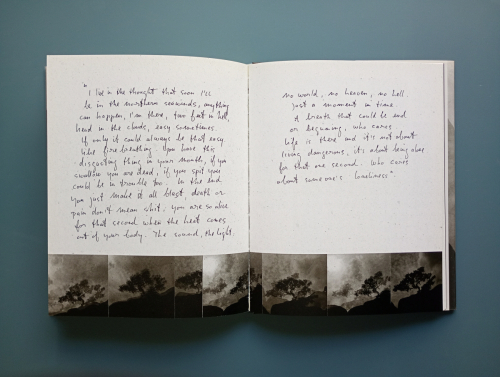 "
I live in the thought that soon I'll
be in the northern seawinds, anything
can happen, I'm there, two feet in hell,
head in the clouds, easy sometimes.
If only it could always be that easy
like fire breathing. You have this
disgusting thing in your mouth, if you
swallow you are dead, if you spit you
could be in trouble too. In the end
you just make it all blast, death or
pain don't mean shit, you are so alive
for that second when the heat comes
out of your body. The sound, the light,
no world, no heaven, no hell.
Just a moment in time.
A breath that could be end
or beginning, who cares
Life is there and it's not about
living dangerous, it's about being alive
for that one second. Who cares
about someone's loneliness".